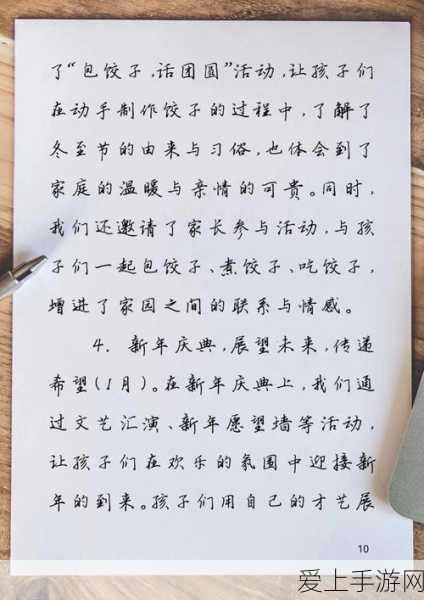 了“包饺子,话团圆”活动,让孩子们
在动手制作饺子的过程中,了解了
冬至节的由来与习俗,也体会到了
家庭的温暖与亲情的可贵。同时,
我们还邀请了家长参与活动,与孩
子们一起包饺子、煮饺子、吃饺子,
增进了家园之间的联系与情感。
4. 新年庆典,展望未来,传递
希望(1月)。在新年庆典上,我们通
过文艺汇演、新年愿望墙等活动,
让孩子们在欢乐的氛围中迎接新
年的到来。孩子们用自己的才艺展
10
爱上手游网